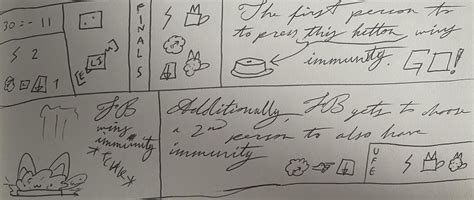 30 = - 11
2
1
ELIM
FINALS
The first person to
to press this button wins
immunity. GO!
LB
wins
immunity
Additionally, LB gets to choose
a 2nd person to also have
immunity
UFE